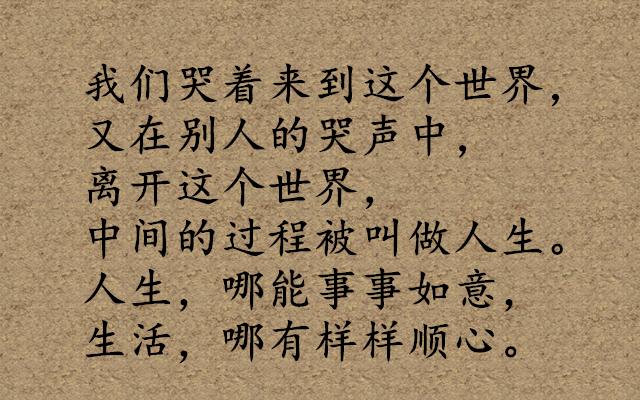 我们哭着来到这个世界，
又在别人的哭声中，
离开这个世界，
中间的过程被叫做人生。
人生，哪能事事如意，
生活，哪有样样顺心。